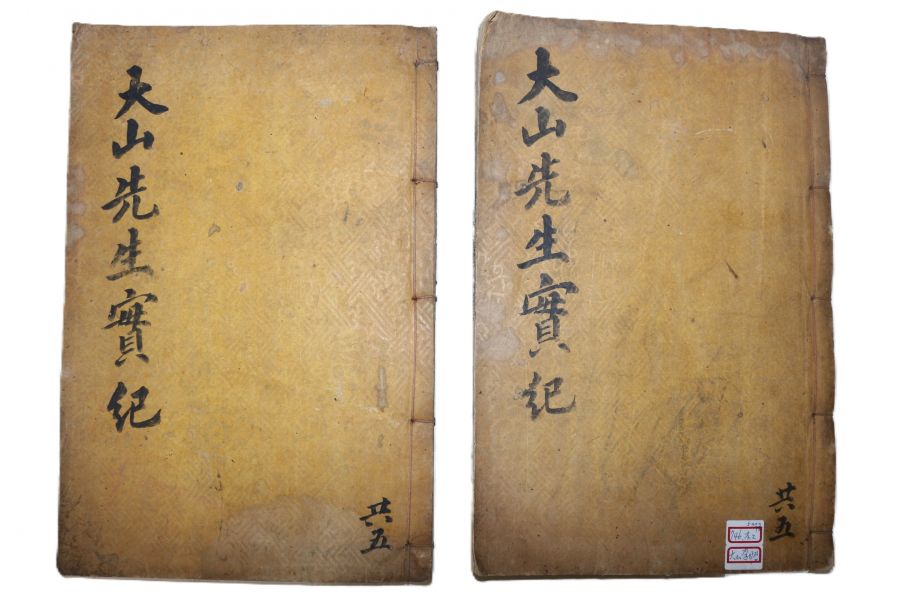 天山先生實紀
共五
大山先生實紀
共五